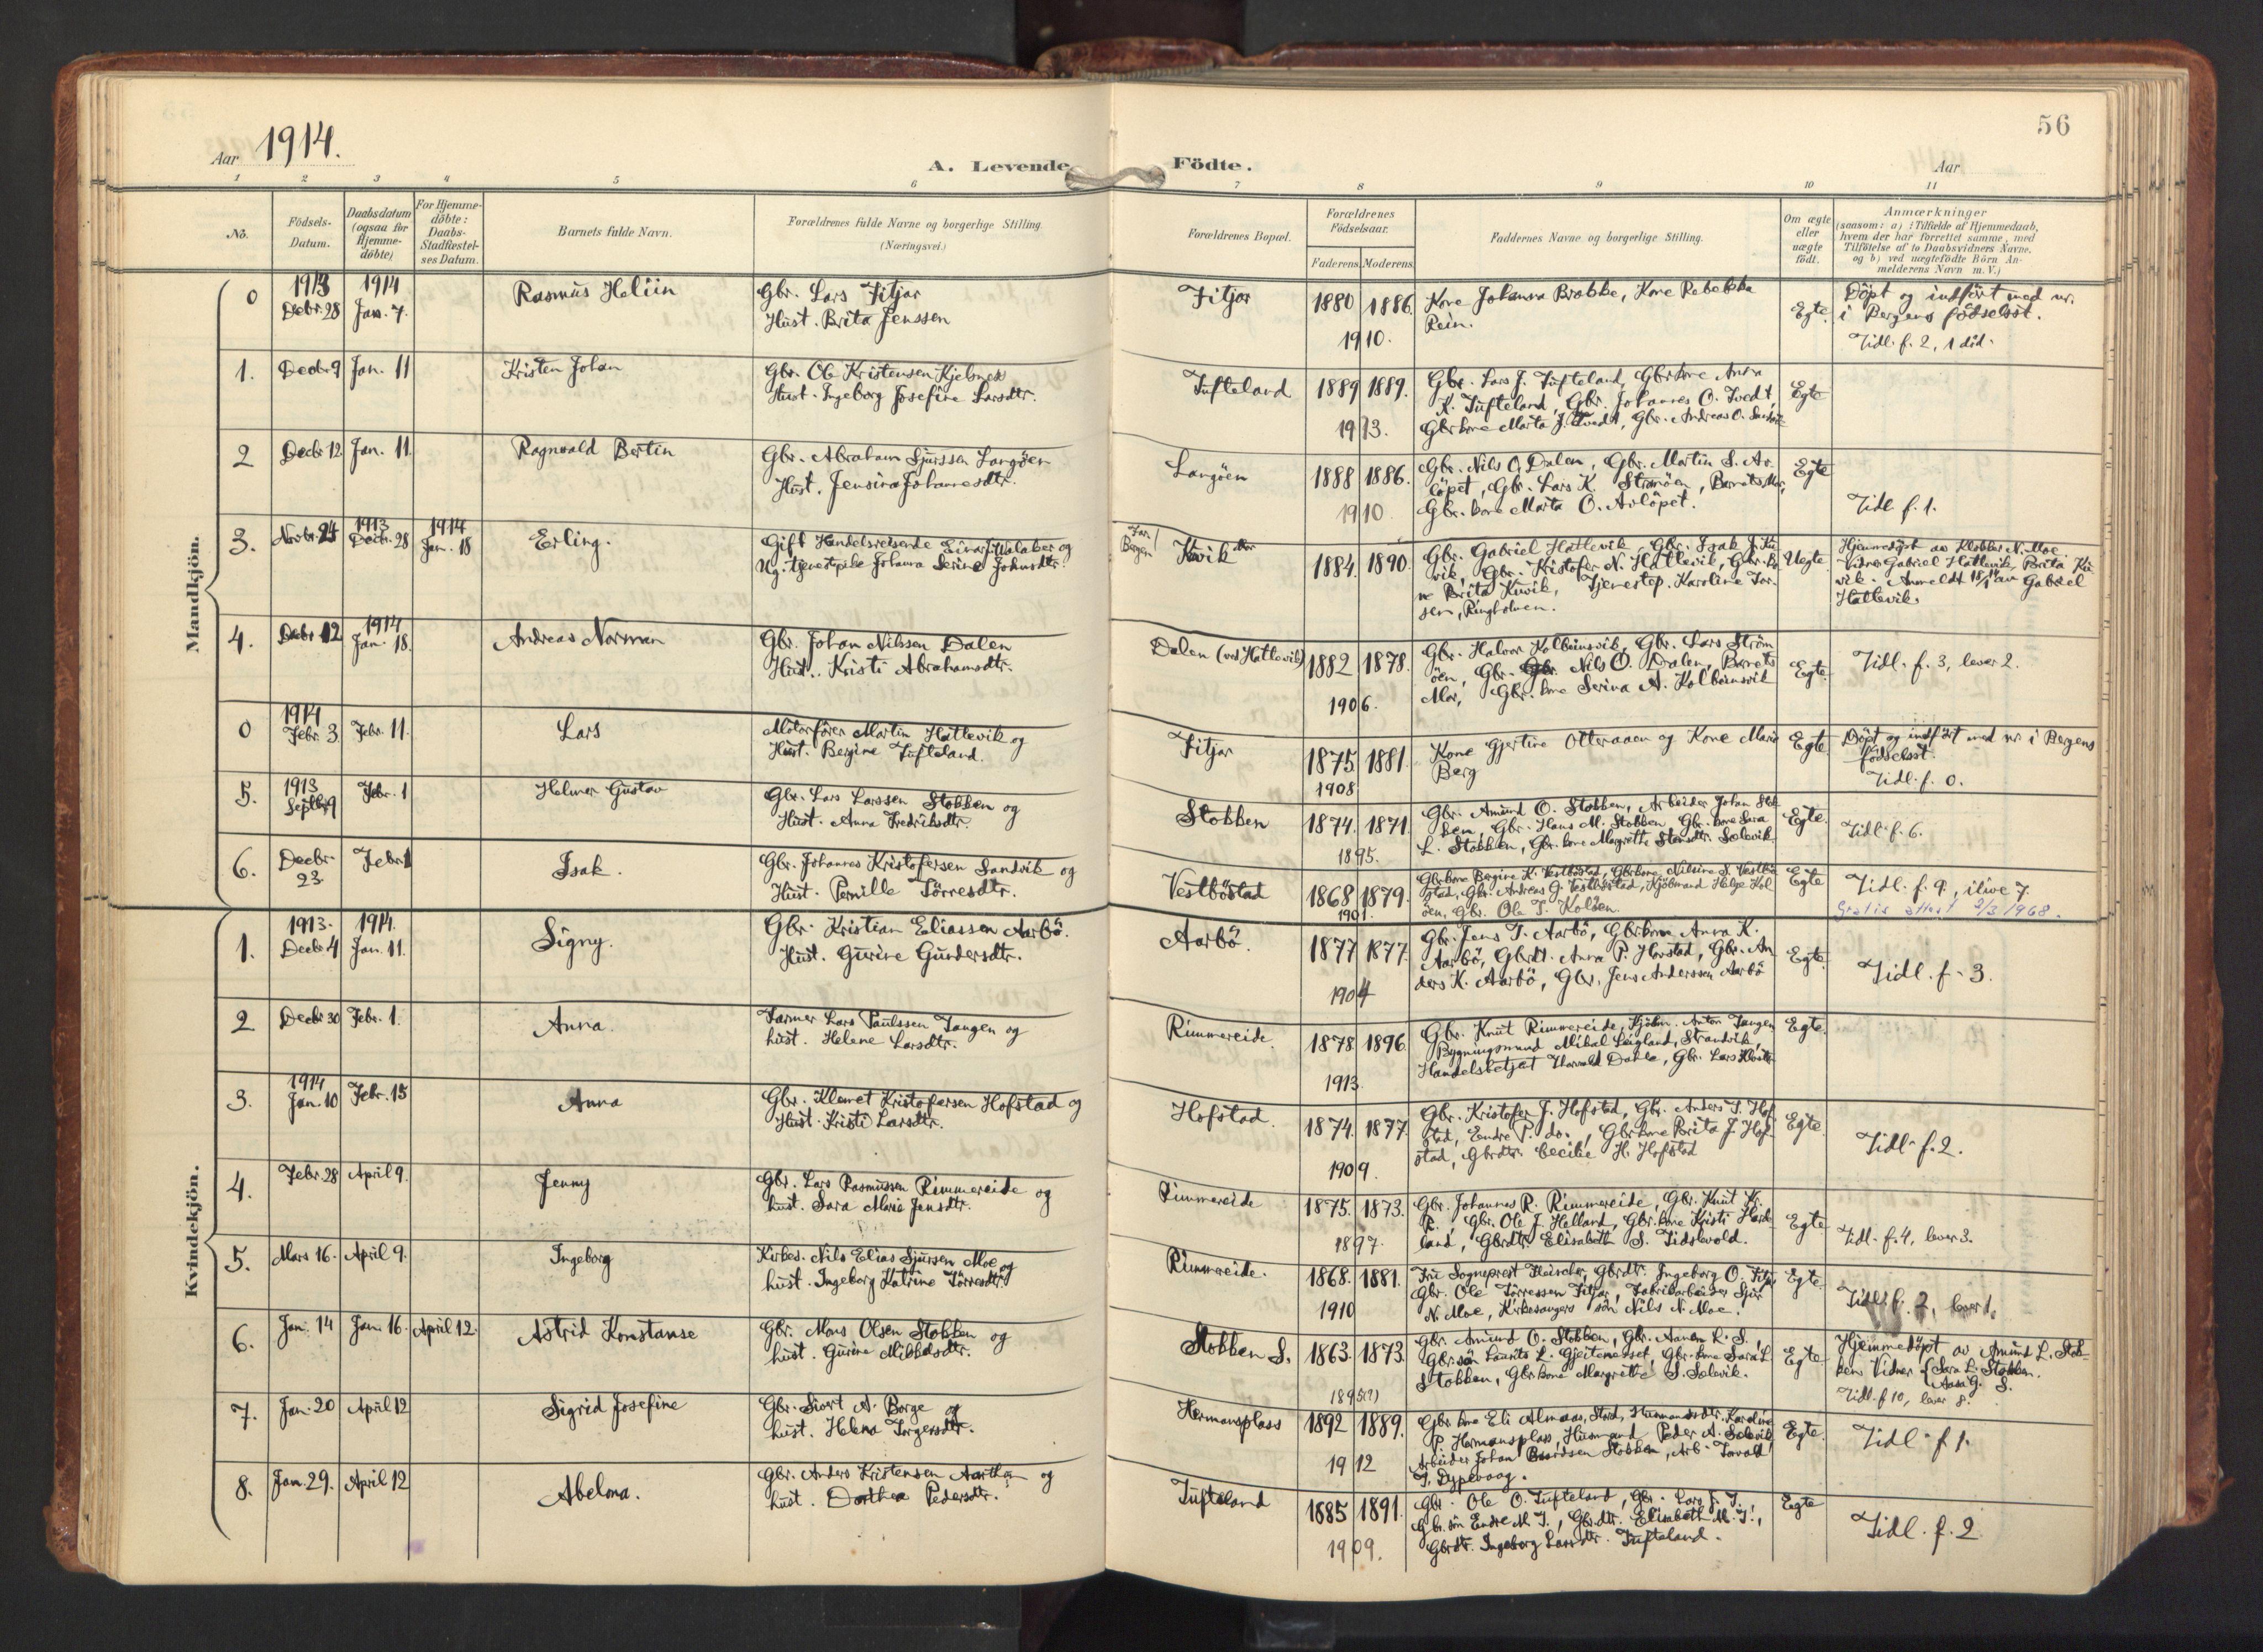 56
Aar 1914.
A. Levende Födte.
Aar
1 2 3 4 5 6 7 8 9 10 11
No.
Födsels-
Datum.
Daabsdatum
(ogsaa for
Hjemme-
döbte)
For Hjemme-
döbte:
Daabs-
Stadfæstel-
ses Datum.
Barnets fulde Navn.
Forældrenes fulde Navne og borgerlige Stilling
(Næringsvei.)
Forældrenes Bopæl.
Forældrenes
Födselsaar.
Faderens. Moderens.
Faddernes Navne og borgerlige Stilling.
Om ægte
eller
uægte
födt.
Anmærkninger
(saasom: a) i Tilfælde af Hjemmedaab,
hvem der har forrettet samme, med
Tilföielse af to Daabsvidners Navne,
og b) ved uægtefödte Börn An-
melderens Navn m. V.)
Mandkjön.
0
1913
Decbr. 28
1914
Jan. 7.
Rasmus
Gbr. Lars Fitjar
Hust. Brita Jenssen
Fitjar
1880 1886.
1910.
Kone Johanna Brabbe, Kone Rebekka
Rein.
Egte.
Döpt og indfört med nr.
i Bergens födselsst.
Tidl. f. 2, 1 död.
1.
Decbr 9
Jan. 11
Kristen Johan
Gbr. Ole Kristensen
Hust. Ingeborg Josefine Larsdtr.
Tufteland
1889 1889.
1913.
Gbr. Lars J. Tufteland, Gbrkone Anna
K. Tufteland, Gbr. Johannes O. Tvedt,
Gbrkone Marta J. Tvedt, Gbr. Andreas O.
Egte
2
Decbr 12
Jan. 11
Ragnvald Bertin
Gbr. Abraham Sjurssen Langöen
Hust. Jensina Johannesdtr.
Langöen
1888 1886.
1910
Gbr. Nils O. Dalen, Gbr. Martin S. Ar-
löpet, Gbr. Lars K. Strömöen, Barnets Mor,
Gbr. kone Marta O. Arlöpet.
Egte
Tidl f. 1.
3.
Novbr. 24
1913
Decbr. 28
1914
Jan. 18
Erling.
Gift Handelsreisende Einar
Ug. tjenestpike Johanna Serine Johnsdtr.
Far /
Bergen
Kuvik
1884. 1890.
Gbr. Gabriel Hattevik, Gbr. Isak J. Ku-
vik, Gbr. Kristofer N. Hattevik, Gbr. ko-
ne Brita Kuvik, Tjenestep. Karoline Tor-
sen, Ringholmen.
Uegte
Hjemmedöpt av Klokker N. Moe.
Vidner Gabriel Hattevik, Brita Ku-
vik. Anmeldt 18/1 av Gabriel
Hattevik.
4.
Decbr 12
1914
Jan. 18.
Andreas Norman
Gbr. Johan Nilssen Dalen
Hust. Kristi Abrahamsdtr.
Dalen (ved Hattevik)
1882 1878.
1906.
Gbr. Halvor Kolbeinsvik, Gbr. Lars Ström
öen, Gbr. Nils O. Dalen, Barnets
Mor, Gbr. kone Serina A. Kolbeinsvik
Egte
Tidl. f. 3, lever 2.
0
1914
Febr. 3.
Febr. 11.
Lars
Motorförer Martin Hattevik og
Hust. Bergine Tufteland.
Fitjar
1875 1881.
1908
Kone Gjertine Otteraaen og Kone Marie
Berg
Egte
Döpt og indfört med nr i Bergens
födselsst.
Tidl. f. 0.
5.
1913
Septbr 9
Febr. 1
Helmer Gustav
Gbr. Lars Larssen Stobben og
Hust. Anna Fredriksdtr.
Stobben
1874. 1871.
1895.
Gbr. Amund O. Stobben, Arbeider Johan Stob-
ben, Gbr. Hans M. Stobben, Gbr. kone Sara
L. Stobben, Gbr. kone Magrethe Stensdtr. Solevik.
Egte.
Tidl. f. 6.
6.
Decbr.
23.
Febr. 1
Isak.
Gbr. Johannes Kristofersen Sandvik og
Hust. Pernille Törresdtr.
Vestböstad
1868 1879.
1901.
Gbrkone Bergine K. Vestböstad, Gbrkone Nilsine S. Vestbö
stad, Gbr. Andreas G. Vestböstad, Kjöbmand Helge Kol
öen, Gbr. Ole T. Kolöen.
Egte
Tidl. f. 9, ilive 7.
Gratis attest 2/3 1968.
Kvindekjön.
1.
1913.
Decbr 4
1914.
Jan. 11.
Signy.
Gbr. Kristian Eliassen Aarbö.
Hust. Gurine Gundersdtr.
Aarbö.
1877 1877.
1904
Gbr. Jens T. Aarbö, Gbrkone Anna K.
Aarbö, Gbrdtr. Anna P. Havstad, Gbr. An-
ders K. Aarbö, Gbr. Jens Anderssen Aarbö
Egte.
Tidl. f. 3.
2
Decbr 30
Febr. 1.
Anna.
Farmer Lars Paulssen Tangen og
hust. Helene Larsdtr.
Rimmereide.
1878 1896.
1913.
Gbr. Knut Rimmereide, Kjöbm. Anton Tangen
Bygningsmand Mikal Leigland, Strandvik,
Handelsbetjent Harvald Dahle, Gbr. Lars
Egte.
3.
1914
Jan. 10
Febr. 15
Anna
Gbr. Klemet Kristofersen Hofstad og
Hust. Kristi Larsdtr.
Hofstad.
1874. 1877.
1909.
Gbr. Kristofer J. Hofstad, Gbr. Anders T. Hof
stad, Endre P. do., Gbrkone Brita J. Hof-
stad, Gbrdtr. Cecilie H. Hofstad
Egte.
Tidl. f. 2.
4.
Febr. 28
April 9.
Jenny
Gbr. Lars Rasmussen Rimmereide og
hust. Sara Marie Jensdtr.
Rimmereide
1875. 1873.
1897.
Gbr. Johannes R. Rimmereide, Gbr. Knut Kr.
R., Gbr. Ole J. Helland, Gbr. kone Kristi Hel-
land, Gbrdtr. Elisabeth S. Tidslevold.
Egte
Tidl. f. 4, lever 3.
5.
Mars 16.
April 9.
Ingeborg
Kirkes. Nils Elias Sjursen Moe og
hust. Ingeborg Katrine Törresdtr.
Rimmereide.
1868. 1881.
1910
Fru Sogneprest Fleischer, Gbrdtr. Ingeborg O. Fitjar
Gbr. Ole Törressen Fitjar, Fabrikarbeider Sjur
N. Moe, Kirkesangers sön Nils N. Moe.
Egte.
Tidl. f. 2, lever 1.
6.
Jan. 14
Jan. 16.
April 12.
Astrid Konstanse
Gbr. Mons Olsen Stobben og
hust. Gurine Mikkelsdtr.
Stobben S.
1863. 1873.
1895(?)
Gbr. Amund O. Stobben, Gbr. R. S.,
Gbr.sön Laurits L. Gjeitenesset, Gbr. kone Sara L.
Stobben, Gbrkone Margrethe S. Solevik.
Egte
Hjemmedöpt av Amund L. Stob-
ben. Vidner { Sara L. Stobben.
Aasa G. S.
Tidl. f. 10, lever 8.
7.
Jan. 20
April 12
Sigrid Josefine
Gbr. Sivert A. Borge og
hust. Helena Torgersdtr.
Hermansplass
1892 1889.
1912
Gbr. kone Eli Almaas, Stord, Husmandsdtr. Karoline
P. Hermansplass, Husmand Peder A. Solevik
Arbeider Johan Baardsen Stobben, Arb. Torvald
T. Dypevaag.
Egte.
Tidl. f. 1.
8.
Jan. 29.
April 12
Abelona.
Gbr. Anders Kristensen og
hust. Dorthea Pedersdtr.
Tufteland
1885 1891.
1909.
Gbr. Ole O. Tufteland, Gbr. Lars J. T.,
Gbr.sön Endre M. T., Gbrdtr. Elisabeth M. T.,
Gbrdtr. Ingeborg Larsdtr. Tufteland.
Egte
Tidl. f. 2